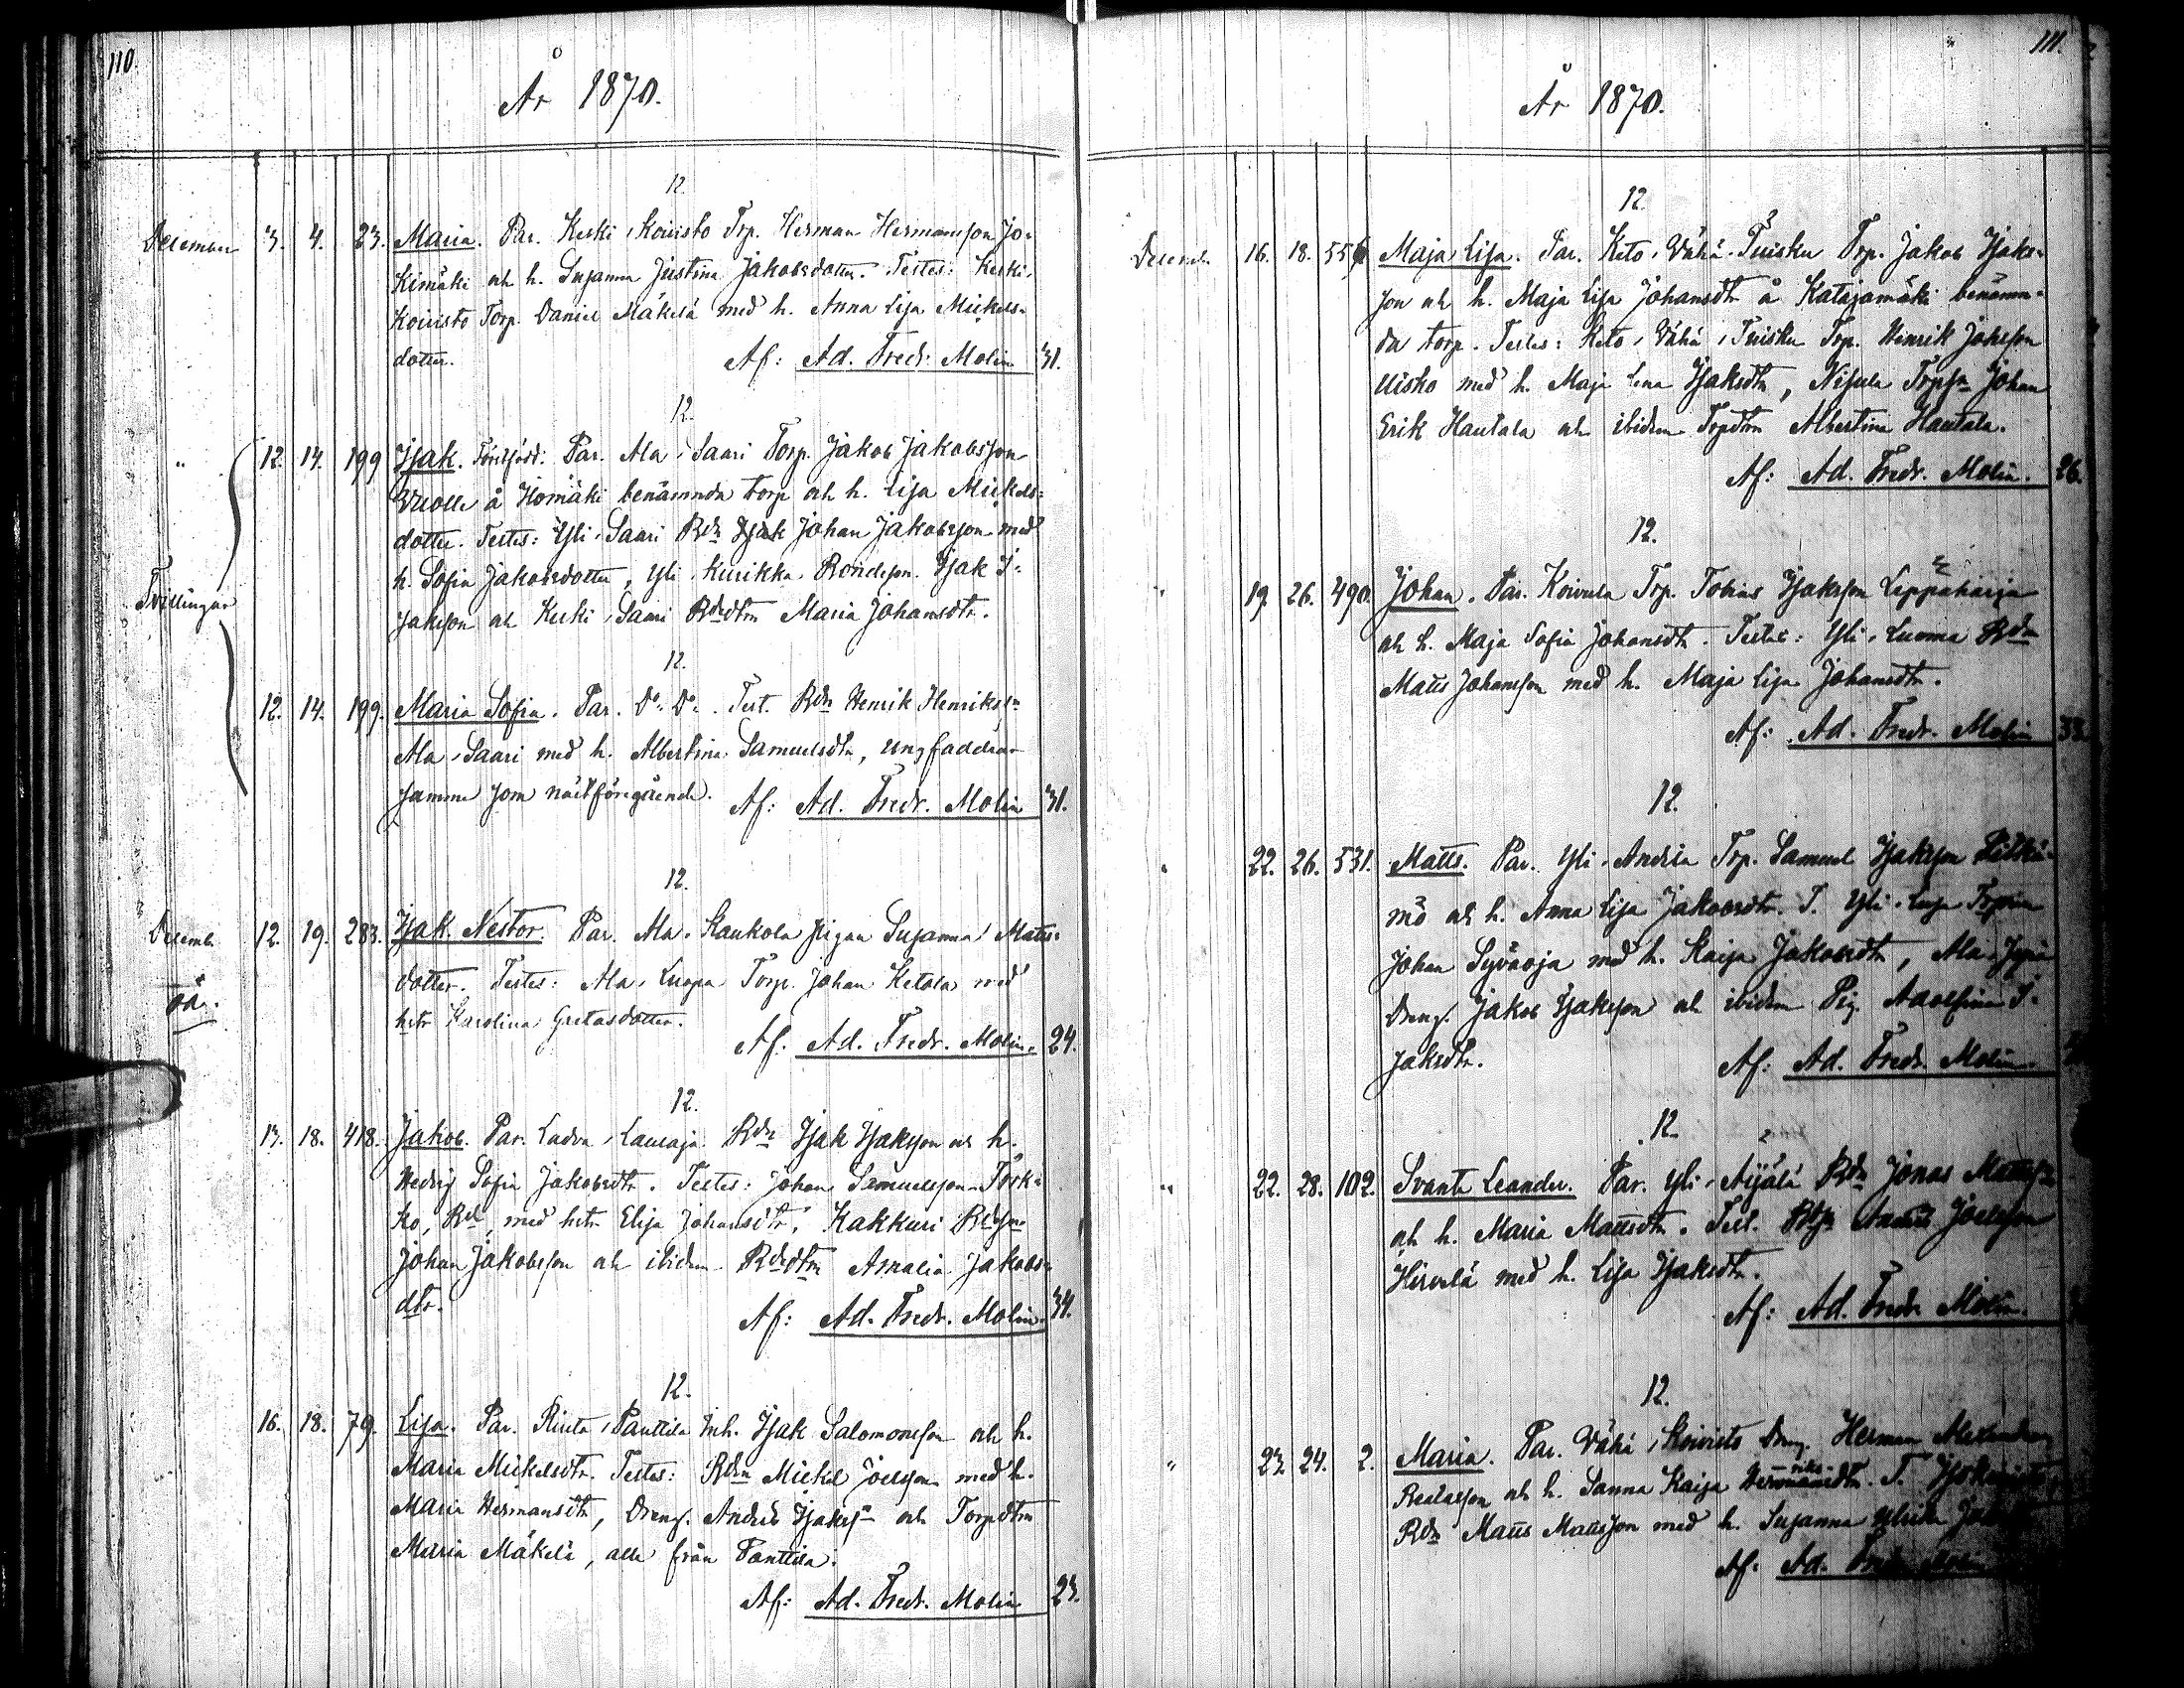 110.
År 1870.
12.
December 3. 4. 23. Maria. Par. Keski-Koivisto Trp. Herman Hermansson Jo-
kimäki och h. Susanna Justina Jakobsdotter. Testes: Keski-
Koivisto Torp. Daniel Mäkelä med h. Anna Lisa Mickels-
dotter. Af: Ad. Fredr. Molin 31.
12.
" 12. 14. 199 Isak. Förstfödd. Par. Ala-Saari Torp. Jakob Jakobsson
Wuolle å Homäki benämnda torp och h. Lisa Mickels-
dotter. Testes: Yli-Saari Rdn Isak Johan Jakobsson med
h. Sofia Jakobsdotter, Yli-Kurikka Bondeson. Isak I-
saksson och Keski-Saari Rdedtrn Maria Johansdtr.
Tvillingar
12.
12. 14. 199. Maria Sofia. Par. Do Do. Test. Rdn Henrik Henrikssn
Ala-Saari med h. Albertina Samuelsdtr, ungfaddrar
samma som nästföregående. Af: Ad. Fredr. Molin 31.
12.
Decemb. 12. 19. 283. Isak Nestor. Par. Ala-Kaukola pigan Susanna Matts-
dotter. Testes: Ala-Luopa Torp. Johan Ketola med
hstr Karolina Gretasdotter.
oä.
Af: Ad. Fredr. Molin. 24.
12.
13. 18. 418. Jakob. Par. Ladva-Lauroja Rdn Isak Isaksson och h.
Hedvig Sofia Jakobsdtr. Testes: Johan Samuelsson Törk-
kö, Rd, med hstr Elisa Johansdtr, Kakkuri Rdesn
Johan Jakobsson och ibidem Rdedtrn Amalia Jakobs-
dtr. Af: Ad. Fredr. Molin. 34.
12.
16. 18. 79. Lisa. Par. Rinta-Panttila Inh. Isak Salomonsson och h.
Maria Mickelsdtr. Testes: Rdn Mickel Joelsson med h.
Maria Hermansdtr, Dreng. Anders Isakssn och Torpdtrn
Maria Mäkelä, alla från Panttila.
Af: Ad. Fredr. Molin 23.
111.
År 1870.
12.
Decemb. 16. 18. 556 Maja Lisa. Par. Keto-Vähä-Tuisku Trp. Jakob Isaks-
son och h. Maja Lisa Johansdtr å Katajamäki benämn-
da torp. Testes: Keto-Vähä-Tuisku Trp. Henrik Johsson
Uisko med h. Maja Lena Isaksdtr, Nisula Trpsn Johan
Erik Hautala och ibidem Trpdtrn Albertina Hautala.
Af: Ad. Fredr. Molin. 26.
12.
" 19. 26. 490. Johan. Par. Koivula Trp. Tobias Isaksson Leppäharja
och h. Maja Sofia Johansdtr. Testes: Yli-Luoma Rdn
Matts Johansson med h. Maja Lisa Johansdtr.
Af: Ad. Fredr. Molin 33.
12.
" 22. 26. 531. Matts. Par. Yli-Andila Trp. Samuel Isaksson
mö och h. Anna Lisa Jakobsdtr. T. Yli-
Johan Syväoja med h. Kaisa Jakobsdtr, Ala-
Dreng. Jakob Isaksson och ibidem Pig. Adolfina I-
saksdtr. Af: Ad. Fredr. Molin.
12.
" 22. 28. 102. Svante Leander. Par. Yli-Äijälä Rdn Jonas Mattssn
och h. Maria Mattsdtr. Test. Anders Joelsson
Hirvelä med h. Lisa Isaksdtr.
Af: Ad. Fredr. Molin.
12.
" 23. 24. 2. Maria. Par. Vähä-Koivisto Dreng. Herman
och h. Sanna Kaisa T.
Rdn Matts Mattsson med h. Susanna Ulrika
Af: Ad. Fredr. Molin